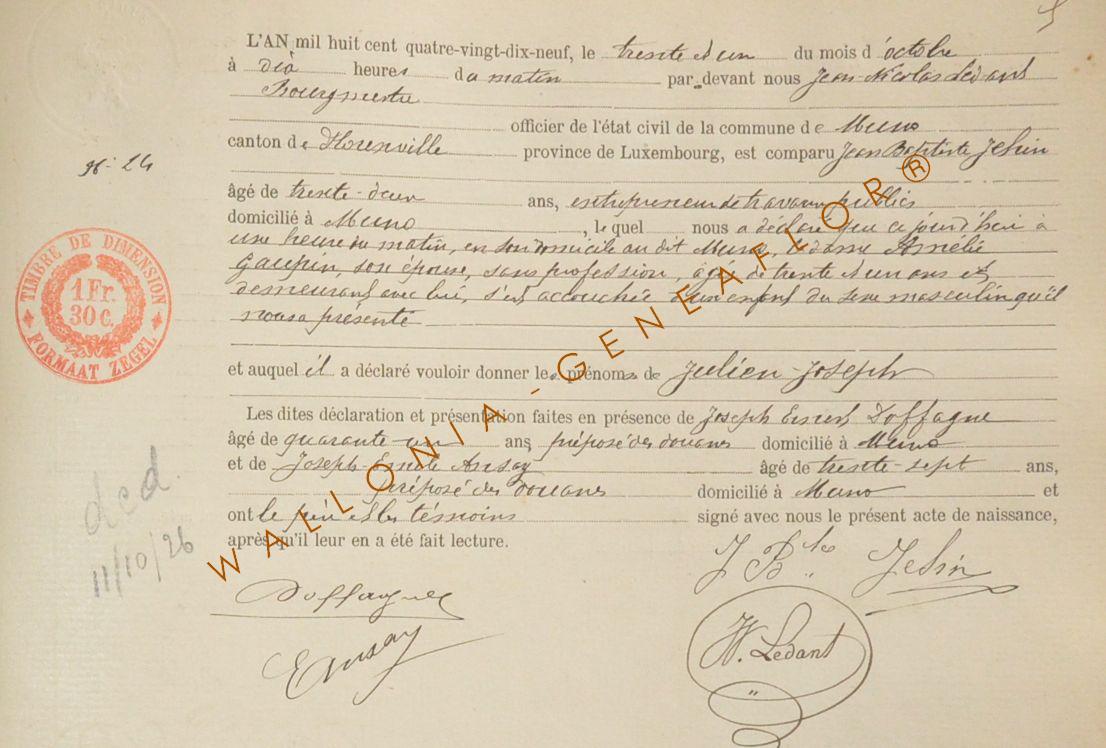 5
L'AN mil huit cent quatre-vingt-dix-neuf, le trente et un du mois d'octobre
à dix heures du matin par devant nous Jean Nicolas Ledant
Bourgmestre
officier de l'état civil de la commune de Muno
canton de Florenville province de Luxembourg, est comparu Jean Baptiste Jehin
âgé de trente-deux ans, entrepreneur de travaux publics
domicilié à Muno, lequel nous a déclaré que ce jourd'hui à
une heure du matin, en son domicile au dit Muno, Dame Amélie
Gaupin, son épouse, sans profession, agée de trente et un ans et
demeurant avec lui, s'est accouchée d'un enfant du sexe masculin qu'il
nous a présenté
et auquel il a déclaré vouloir donner les prénoms de Julien-Joseph
Les dites déclaration et présentation faites en présence de Joseph Ernest Doffagne
âgé de quarante-un ans, préposé des douanes domicilié à Muno
et de Joseph-Emile Ansay âgé de trente-sept ans,
préposé des douanes domicilié à Muno et
ont le père et les témoins signé avec nous le présent acte de naissance,
après qu'il leur en a été fait lecture.
J Bte Jehin
Doffagne
Eansay
N. Ledant
TIMBRE DE DIMENSION
1 Fr.
30 C.
FORMAAT ZEGEL
dcd.
11/10/26
WALLONIA-GENEAFLOR®